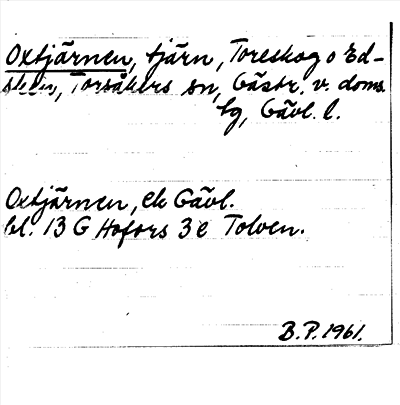 Oxtjärnen, tjärn, Toreskog o Ed-
sken, Torsåkers sn, Gästr. v. doms.
tg, Gävl. l.
Oxtjärnen, ek Gävl.
bl. 13 G Hofors 3 e Tolven.
B.P. 1961.